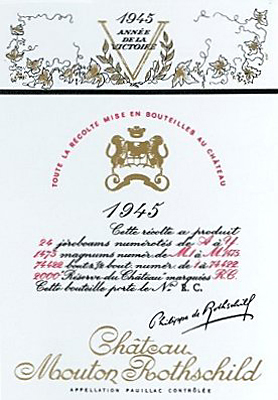 1945
ANNÉE
DE LA
VICTOIRE
V
TOUTE LA RÉCOLTE MISE EN BOUTEILLES AU CHÂTEAU
1945
Cette récolte a produit
24 jéroboams numérotés de A à Y
1475 magnums numér. de M1 à M1475
74422 bout. & ½ bout. numér. de 1 à 74422
2000 Réserve du Château marquées R.C.
Cette bouteille porte le N° R.C.
Philippe de Rothschild
Château
Mouton Rothschild
APPELLATION PAUILLAC CONTRÔLÉE